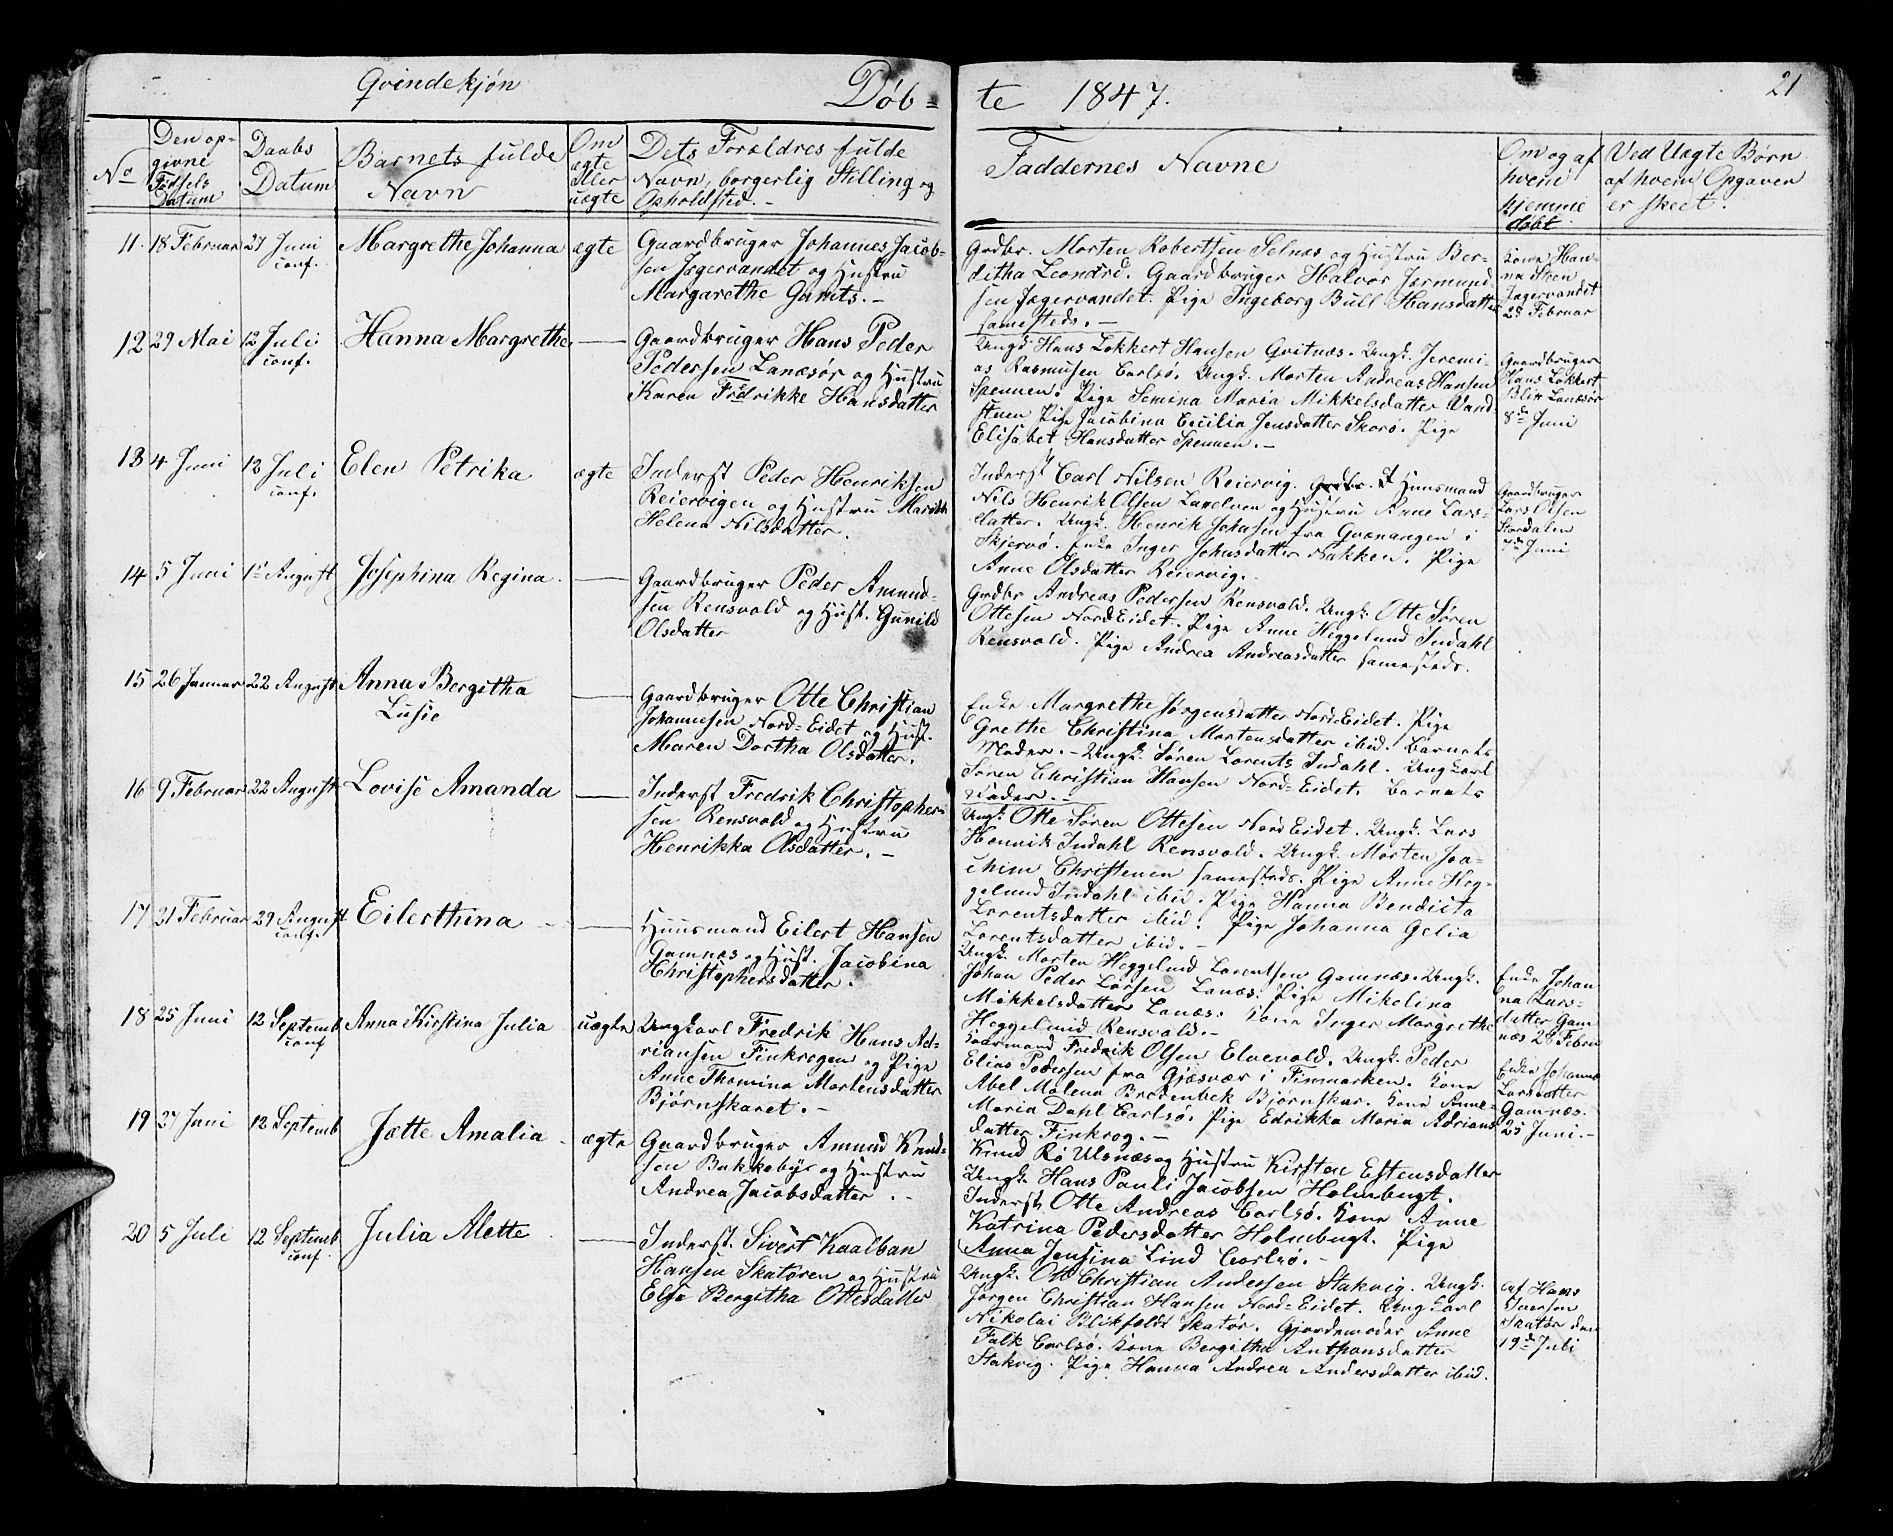 Qvindekjøn
Døb=
te 1847.
21
No
Den op-
givne
Fødsels
Datum
Daabs
Datum
Barnets fulde
Navn
Om
ægte
eller
uægte
Dets Forældres fulde
Navn, borgerlig Stilling og
Opholdsted.-
Faddernes Navne
Om og af
hvem
hjemme
døbt
Ved Uægte Børn
af hvem Opgaven
er skeet.
11. 18 Februar 27 Juni
conf.
Margrethe Johanna
ægte
Gaardbruger Johannes Jacob-
sen Jægervandet og Hustru
Margarethe
Grdbr. Morten Robertsen Selnæs og Hustru Ber-
ditha Leonærd. Gaardbruger Halvor Jørmund-
sen Jægervandet. Pige Ingeborg Bull Hansdatter
samesteds.-
Kone Han-
na Steen
Jægervandet
25 Februar
12 29 Mai 12 Juli
conf.
Hanna Margrethe
Gaardbruger Hans Peder
Pedersen Lanæsør og Hustru
Karen Fredrikke Hansdatter
Ungk. Hans Lokkert Hansen Qvitnæs. Ungk. Jeremi-
as Rasmusen Carlsø. Ungk. Morten Andreas Hansen
Spennen. Pige Semina Maria Mikkelsdatter Vand-
stuen Pige Jacobina Cecilia Jensdatter Skorø. Pige
Elisabet Hansdatter Spennen.-
Gaardbruger
Hans Lokkert
Blix Lanæsør
8de Juni
13 4 Juni 12 Juli
conf.
Elen Petrika
ægte
Inderst Peder Henriksen
Reiervigen og Hustru
Helena Nilsdatter.
Inderst Carl Nilsen Reiervig. Huusmand
Nils Henrik Olsen Lanelven og Hustru Anne Lars-
datter. Ungk. Henrik Johnsen fra Qvænangen i
Skjervø. Enke Inger Johnsdatter Nakken. Pige
Anne Olsdatter Reiervig.
Gaardbruger
Lars Olsen
Stordalen
7de Juni
14 5 Juni 1st August
Josephina Regina.
Gaardbruger Peder Amund-
sen Rensvold og Hust. Gunild
Olsdatter
Grdbr Andreas Pedersen Rensvold. Ungk. Otte Søren
Ottesen NordEidet. Pige Anne Heggelund Indahl
Rensvold. Pige Andrea Andreasdatter samesteds.
15 26 Januar 22 August
Anna Bergitha
Lusie
Gaardbruger Otte Christian
Johannesen Nord-Eidet og Hust.
Maren Dortha Olsdatter.
Enke Margrethe Jørgensdatter Nord-Eidet. Pige
Grethe Christina Mortensdatter ibid. Barnets
Moder.- Ungk. Søren Lorents Indahl. Ungkarl
Søren Christian Hansen Nord-Eidet. Barnets
Fader.-
16 9 Februar 22 August
Lovise Amanda
Inderst Fredrik Christopher-
sen Rensvold og Hustru
Henrikka Olsdatter.-
Ungk. Otte Søren Ottesen NordEidet. Ungk. Lars
Henrik Indahl Rensvold. Ungk. Morten Joa-
chim Christensen samesteds. Pige Anne Heg-
gelund Indahl ibid. Pige Hanna Bendicta
Lorentsdatter ibid. Pige Johanna Gelia
Lorentsdatter ibid.-
17 21 Februar 29 August
conf.
Eilerthina
Huusmand Eilert Hansen
Gamnæs og Hust. Jacobina
Christophersdatter.
Ungk. Morten Heggelund Lorentsen Gamnæs. Ungk.
Johan Peder Larsen Lanæs. Pige Mikelina
Mikkelsdatter Lanæs. Kone Inger Margrethe
Heggelund Rensvold.-
Enke Johan-
na Lars-
datter Gam-
næs 28 Februa
18 25 Juni 12 Septemb
conf
Anna Kirstina Julia
uægte
Ungkarl Fredrik Hans Ad-
riansen Finkrogen og Pige
Anne Thomina Mortensdatter
Bjørnskaret.-
Kaarmand Fredrik Olsen Elvevold. Ungk. Peder
Elias Pedersen fra Gjæsvær i Finmarken. Kone
Abel Malena Bredenbek Bjørnskar. Kone Anne-
Maria Dahl Carlsø. Pige Edrikka Maria Adrians-
datter Finkrog.-
Enke Johanna
Larsdatter
Gamnæs.
25 Juni.-
19 27 Juni 12 Septemb
Jætte Amalia
ægte
Gaardbruger Amund Knud-
sen Bakkebye og Hustru
Andrea Jacobsdatter.-
Knud Rø Ulsnæs og Hustru Kirsten Estensdatter
Ungk. Hans Pauli Jacobsen Holmbugt.
Inderst Otte Andreas Carlsø. Kone Anne
Katrina Pedersdatter Holmbugt. Pige
Anna Jensina Lind Carlsø.-
20 5 Juli 12 Septemb
conf.
Julia Alette
Inderst. Sivert Kaalban
Hansen Skatøren og Hustru
Else Bergitha Ottesdatter
Ungk. Ott Christian Andersen Stakvig. Ungk.
Jørgen Christian Hansen Nord-Eidet. Ungkarl
Nikolai Blikfeldt Skatør. Gjordemoder Anne
Falk Carlsø. Kone Bergitha Anthonsdatter
Stakvig. Pige Hanna Andrea Andersdatter ibid.
af Hans
Iversen
Skatør den
19de Juli